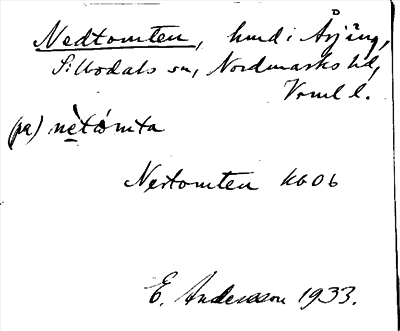 Nedtomten, hmd i Årjäng,
Sillbodals sn, Nordmarks hd,
Vrml l.
(på) nètómta
Nertomten kbOb
E. Andersson 1933.